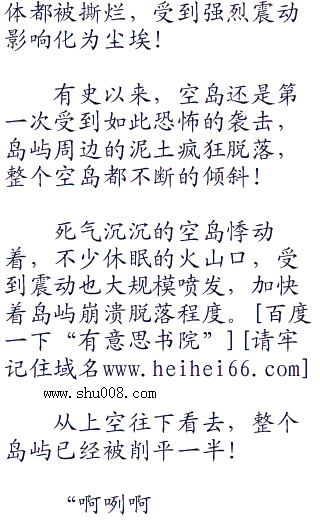 体都被撕烂，受到强烈震动
影响化为尘埃！
有史以来，空岛还是第
一次受到如此恐怖的袭击，
岛屿周边的泥土疯狂脱落，
整个空岛都不断的倾斜！
死气沉沉的空岛悸动
着，不少休眠的火山口，受
到震动也大规模喷发，加快
着岛屿崩溃脱落程度。[百度
一下“有意思书院”][请牢
记住域名www.heihei66.com]
www.shu008.com
从上空往下看去，整个
岛屿已经被削平一半！
“啊咧啊